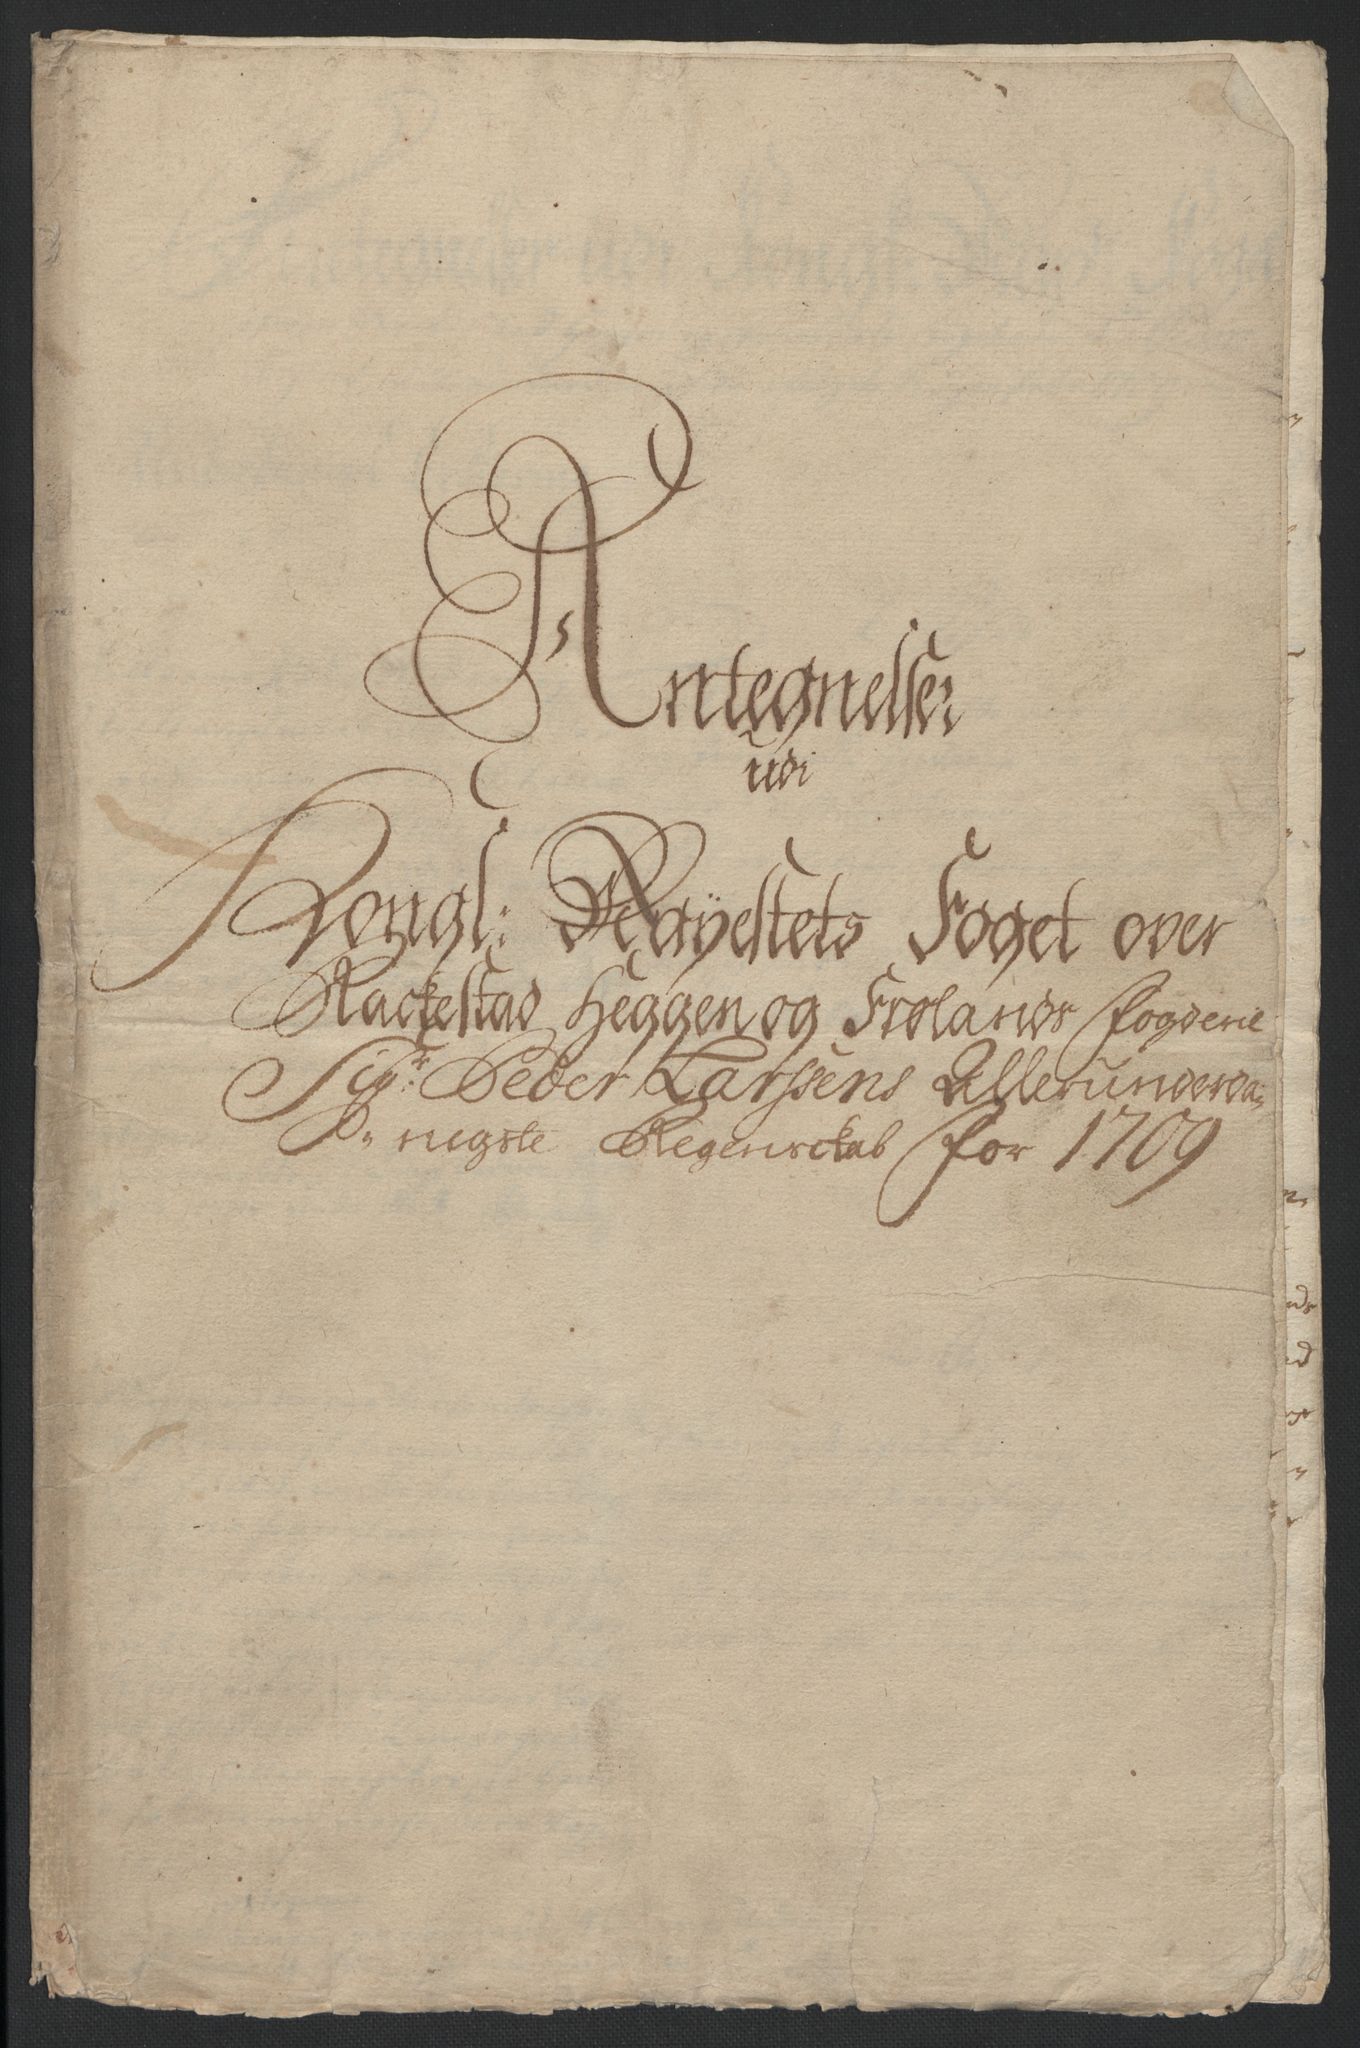 Antegnelser
udi
Kongl: Mayestets Foget over
Rackestad Heggen og Frølands fogderie
Sigr: Peder Larssens Allerunderda-
nigste Regenskab for 1709